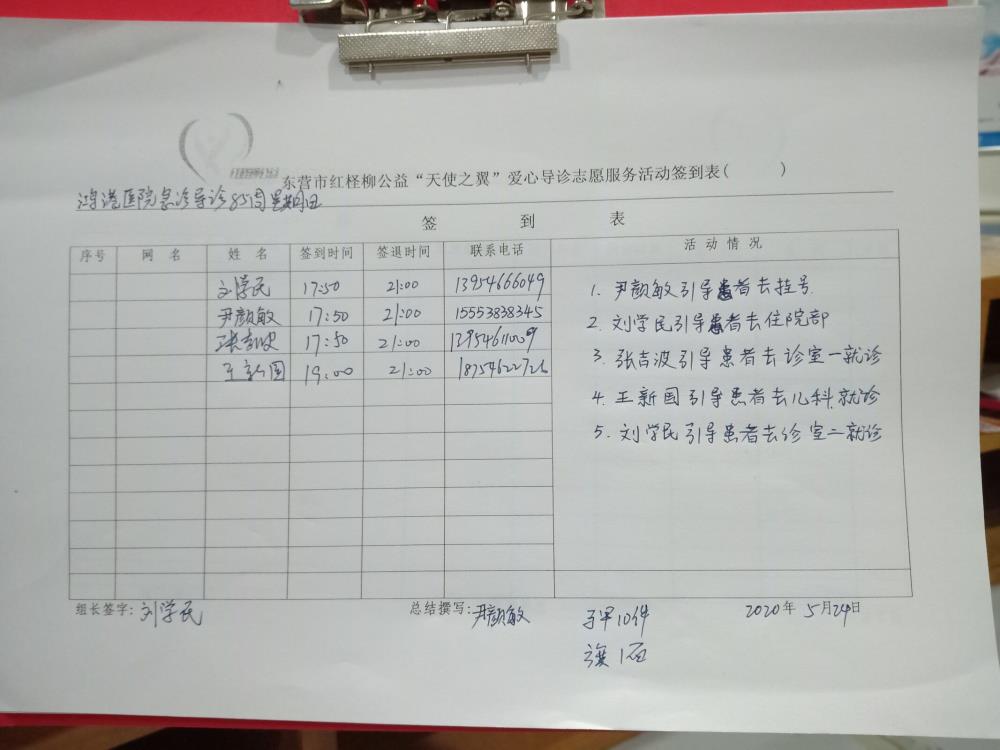 东营市红柽柳公益“天使之翼”爱心导诊志愿服务活动签到表( )
鸿港医院急诊导诊85周星期日
签 到 表
序号 网 名 姓 名 签到时间 签退时间 联系电话 活 动 情 况
刘学民 17:50 21:00 13954666049
尹颜敏 17:50 21:00 15553838345
张吉波 17:50 21:00
王新国 19:00 21:00 18754622726
1. 尹颜敏引导患者去挂号.
2. 刘学民引导患者去住院部
3. 张吉波引导患者去诊室一就诊
4. 王新国引导患者去儿科就诊
5. 刘学民引导患者去诊室二就诊
组长签字:刘学民 总结撰写:尹颜敏 2020年 5月24日
马甲10件
旗1面